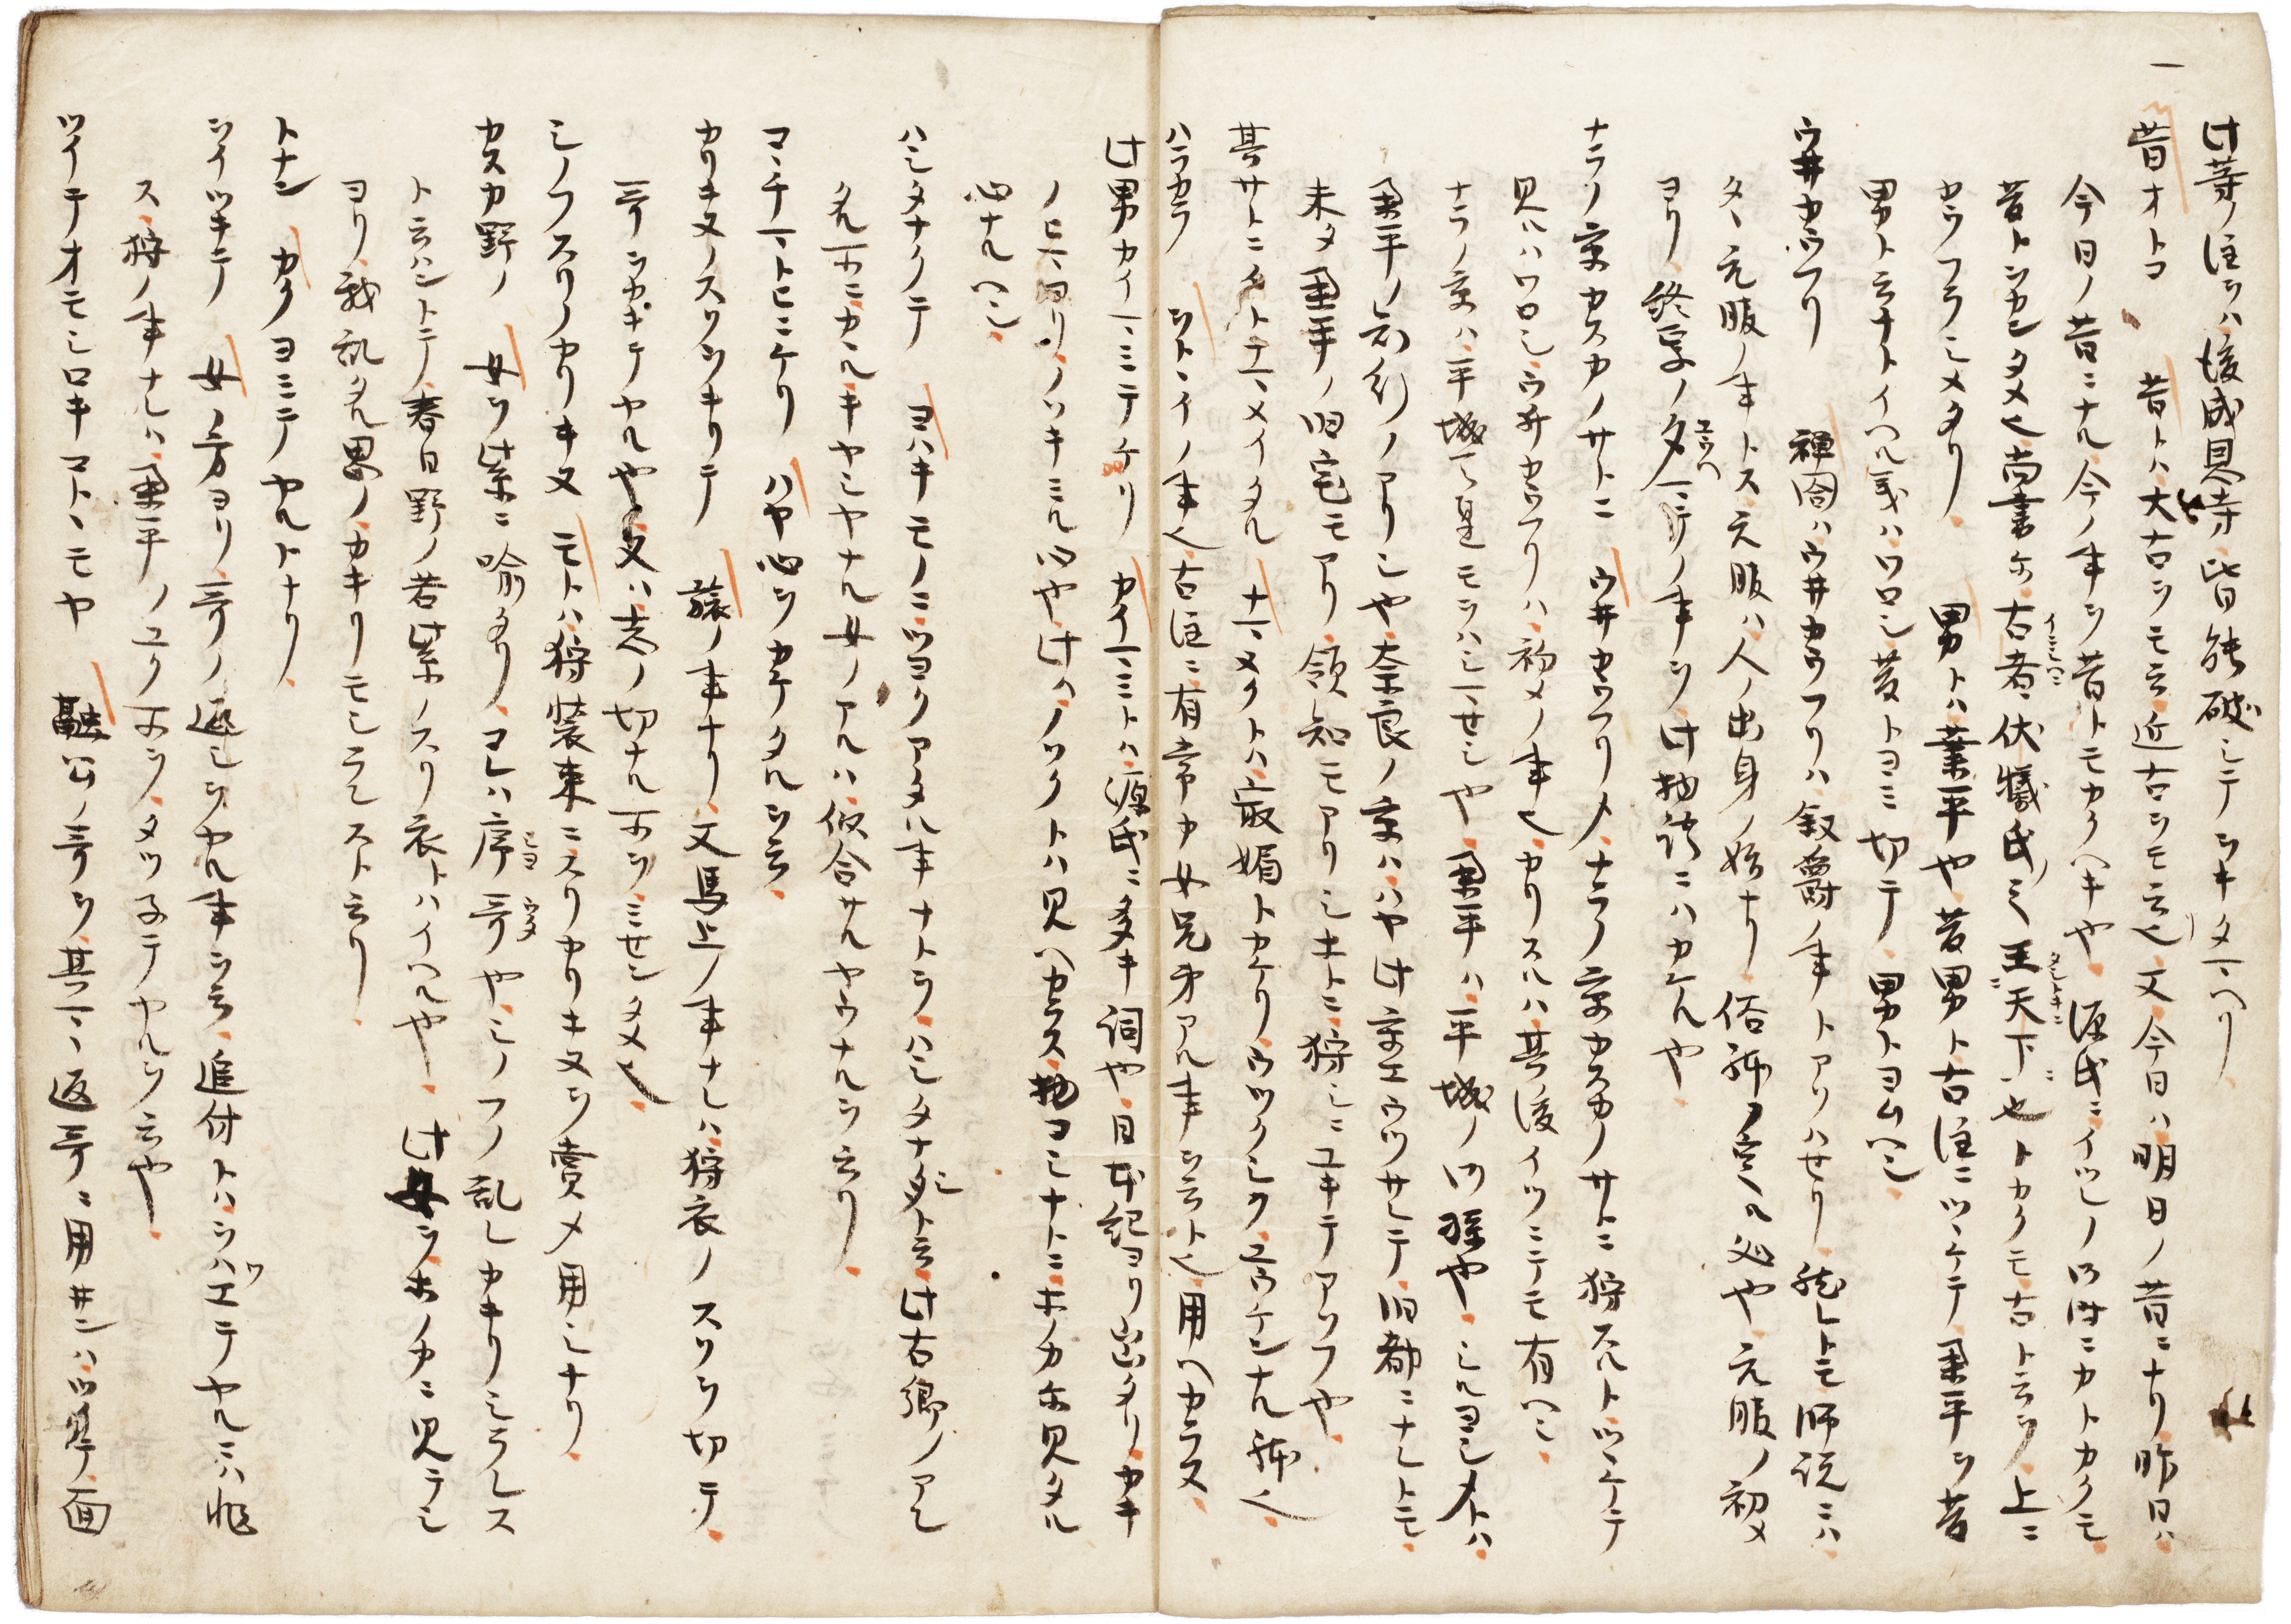 此等ノ注ヲハ後成恩寺皆能破シテヲキタマヘリ
一
昔オトコ 昔トハ大古ヲモ云近古ヲモ云也又今日ハ明日ノ昔ニナリ昨日ハ
今日ノ昔ニナル今ノ事ヲ昔トモカクヘキヤ源氏ニイツレノ御時ニカトカクモ
昔トヲカンタメ也尚書ニ古者伏犧氏之王天下也トカクモ古ト云ヲ上ニ
カウフラシメタリ 男トハ業平也昔男ト古注ニツヽケテ業平ヲ昔
男ト云ナトイヘル義ハワロシ昔トヨミ切テ男トヨムヘシ
ウ井カウフリ 禅閤ハウ井カウフリハ叙爵ノ事トアソハセリ然トモ師説ニハ
タヽ元服ノ事トス元服ハ人ノ出身ノ始ナリ俗弥ヲ定ル必ヤ元服ノ初メ
ヨリ終焉ノ夕マテノ事ヲ此物語ニハカケルヤ
ナラノ京カスカノサトニ ウ井カウフリメナラノ京カスカノサトニ狩スルトツヽケテ
見ルハワロシウ井カウフリハ初メノ事也カリスルハ其後イツニテモ有ヘシ
ナラノ京ハ平城天皇モヲハシマセシヤ業平ハ平城ノ御孫ヤシルヨシメトハ
業平ノ知行ノアリシヤ奈良ノ京ハハヤ此京エウツサレテ旧都ニナレトモ
未タ業平ノ旧宅モアリ領知モアリシホトニ狩シニユキテアソフヤ
其サトニイトナマメイタル ナマメクトハ最媚トカケリウツクシクユウケンナル躰也
ハラカラ ヲトヽイノ事也古注ニ有常カ女兄弟アル事ヲ云ト也用ヘカラス
此男カイマミテケリ カイマミトハ源氏ニ多キ詞ヤ日本紀ヨリ出タリカキ
ノヒマヨリノソキミル心ヤ此ノソクトハ見ヘカラス物コシナトニホノカホ見タル
心ナルヘシ
ハシタナクテ ヨハキモノニツヨクアタル事ナトヲハシタナシト云此古郷ノアレ
タル所ニカルキヤシヤナル女ノアルハ似合サルヤウナルヲ云リ
コヽチマトヒニケリ ハヤ心ヲカケタルヲ云
カリキヌノスソヲキリテ 旅ノ事ナリ又馬上ノ事ナレハ狩衣ノスソヲ切テ
哥ヲカキテヤルヤ又ハ志ノ切ナル所ヲミセンタメ也
シノフスリノカリキヌ モトハ狩装束ニスリカリキヌヲ賞メ用シナリ
カスカ野ノ 女ヲ紫ニ喩タリコレハ序哥ヤシノフノ乱レカキリシラレス
ト云ハントテ春日野ノ若紫ノスリ衣トハイヘルヤ此女ヲホノカニ見テシ
ヨリ我乱タル思ノカキリモシラレスト云リ
トナン カクヨミテヤルトナリ
ヲイツキテ 女ノ方ヨリ哥ノ返シヲヤル事ヲ云追付トハヲハエテヤルニハ非
ス狩ノ事ナレハ業平ノユク所ヲタツ子テヤルヲ云ヤ
ツイテオモシロキコトヽモヤ 融公ノ哥ヲ其マヽ返哥ニ用井シハツ井テ面